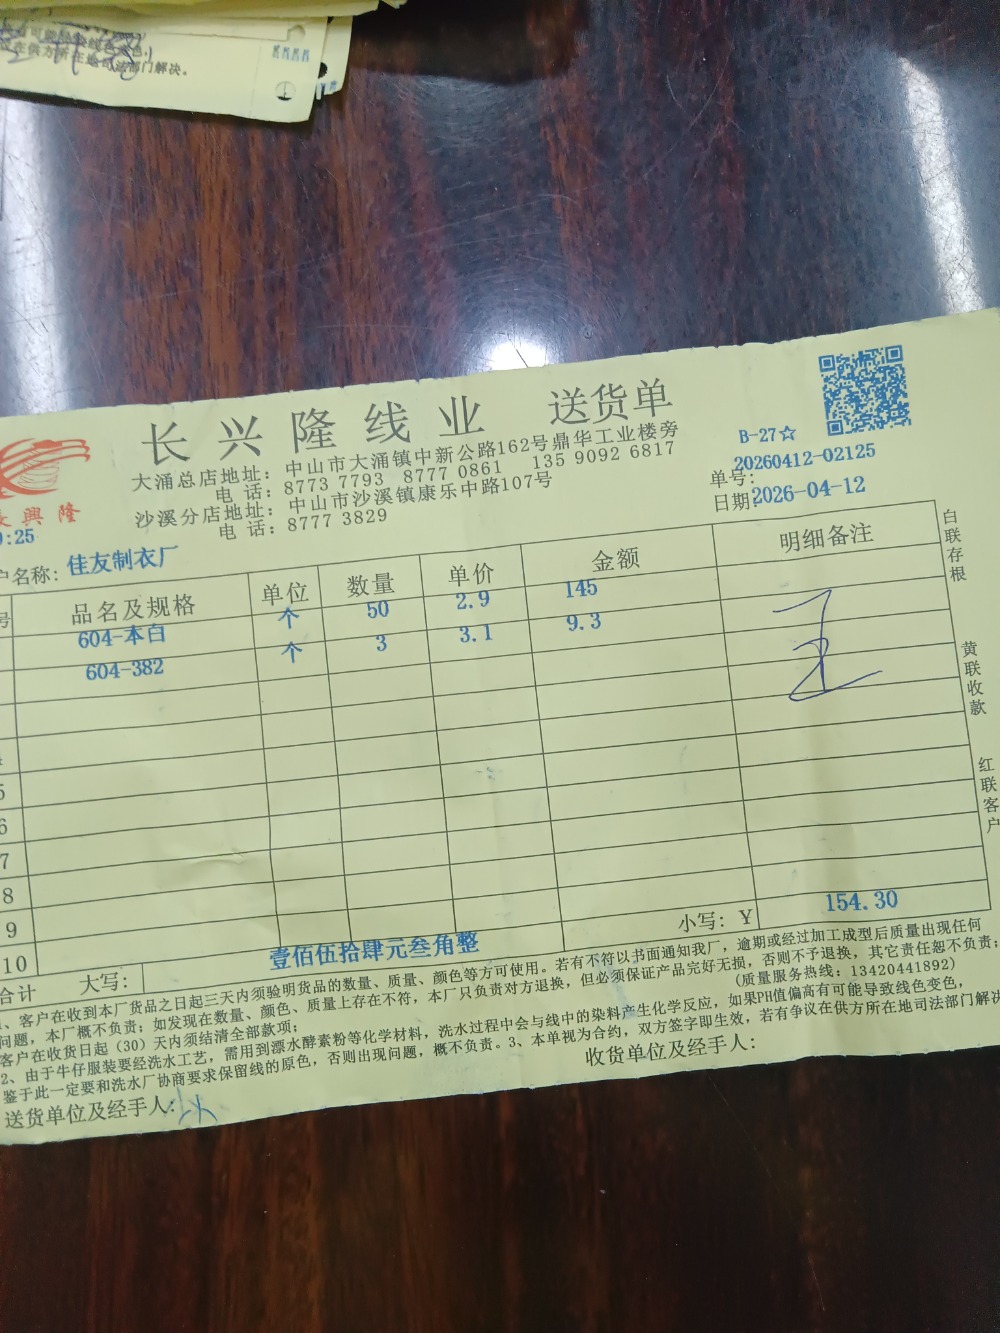 在供方所在地司法部门解决。
長興隆
长兴隆线业 送货单
大涌总店地址：中山市大涌镇中新公路162号鼎华工业楼旁
电话：8773 7793 8777 0861 135 9092 6817
沙溪分店地址：中山市沙溪镇康乐中路107号
电话：8777 3829
B-27☆
单号：20260412-02125
日期：2026-04-12
:25
户名称：佳友制衣厂
号 品名及规格 单位 数量 单价 金额 明细备注
604-本白 个 50 2.9 145
604-382 个 3 3.1 9.3
5
6
7
8
9
10
合计 大写：壹佰伍拾肆元叁角整 小写：￥ 154.30
白联存根
黄联收款
红联客户
1、客户在收到本厂货品之日起三天内须验明货品的数量、质量、颜色等方可使用。若有不符以书面通知我厂，逾期或经过加工成型后质量出现任何
问题，本厂概不负责；如发现在数量、颜色、质量上存在不符，本厂只负责对方退换，但必须保证产品完好无损，否则不予退换，其它责任恕不负责；
客户在收货日起（30）天内须结清全部款项； (质量服务热线：13420441892)
2、由于牛仔服装要经洗水工艺，需用到漂水酵素粉等化学材料，洗水过程中会与线中的染料产生化学反应，如果PH值偏高有可能导致线色变色，
鉴于此一定要和洗水厂协商要求保留线的原色，否则出现问题，概不负责。3、本单视为合约，双方签字即生效，若有争议在供方所在地司法部门解决
送货单位及经手人：
收货单位及经手人：